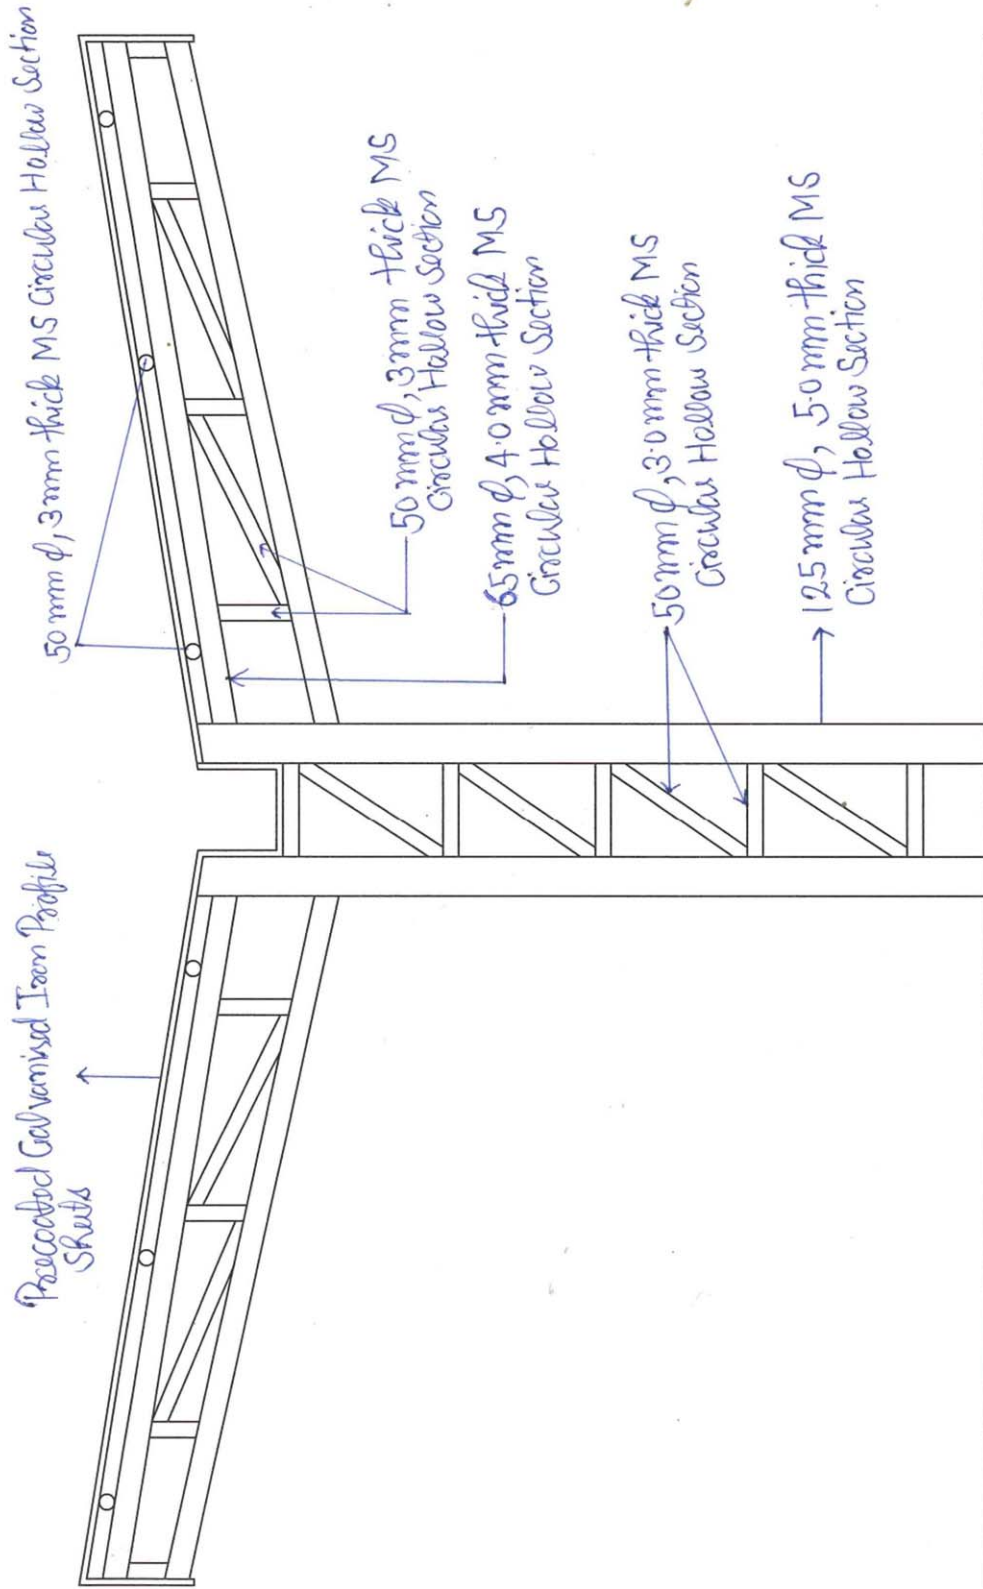 Precoated Galvanised Iron Profile
Sheets
50 mm ϕ, 3 mm thick MS Circular Hollow Section
50 mm ϕ, 3 mm thick MS
Circular Hallow Section
65 mm ϕ, 4.0 mm thick MS
Circular Hollow Section
50 mm ϕ, 3.0 mm thick MS
Circular Hallow Section
125 mm ϕ, 5.0 mm thick MS
Circular Hollow Section